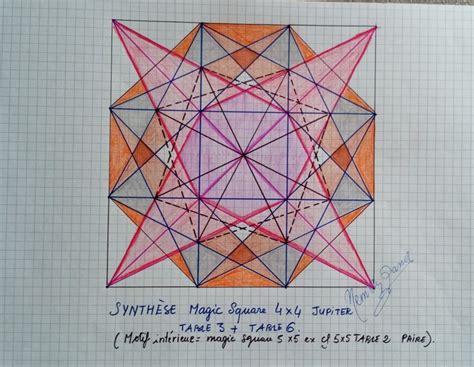 SYNTHÈSE Magic Square 4x4 JUPITER
TABLE 3 + TABLE 6.
(Motif intérieur= magic squar 5x5 ex cf 5x5 TABLE 2 PAIRE).